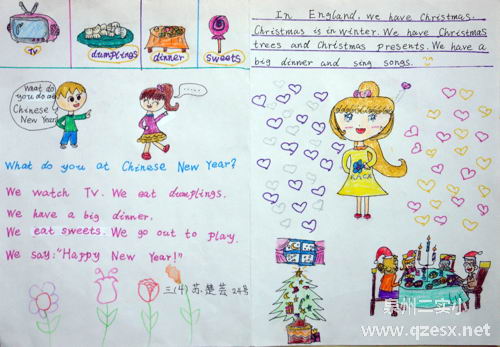 TV
dumplings
dinner
sweets
What do
you do at
Chinese
New Year
What do you at Chinese New Year?
We watch TV. We eat dumplings.
We have a big dinner.
We eat sweets. We go out to play.
We say: "Happy New Year!"
三(4) 苏楚芸 24号
In England, we have Christmas.
Christmas is in winter. We have Christmas
trees and Christmas presents. We have a
big dinner and sing songs.
泉州二实小
www.qzesx.net